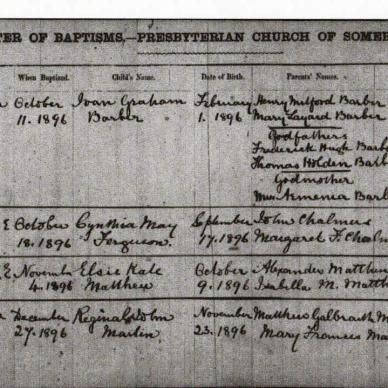 TER OF BAPTISMS,—PRESBYTERIAN CHURCH OF SOMER
When Baptized. Child's Name. Date of Birth. Parents' Names.
October Ivan Graham February Henry Milford Barber
11. 1896 Barber 1. 1896 Mary Layard Barber
Godfathers
Frederick Hugh Barb
Thomas Holden Barb
Godmother
Armenia Barb
E October Cynthia May September John Chalmers
18. 1896 Ferguson. 17. 1896 Margaret F. Chalm
E November Elsie Kate October Alexander Matthew
4. 1896 Matthew 9. 1896 Isabella M. Matth
December Reginald John November Matthew Galbraith M
27. 1896 Martin 23. 1896 Mary Frances Ma